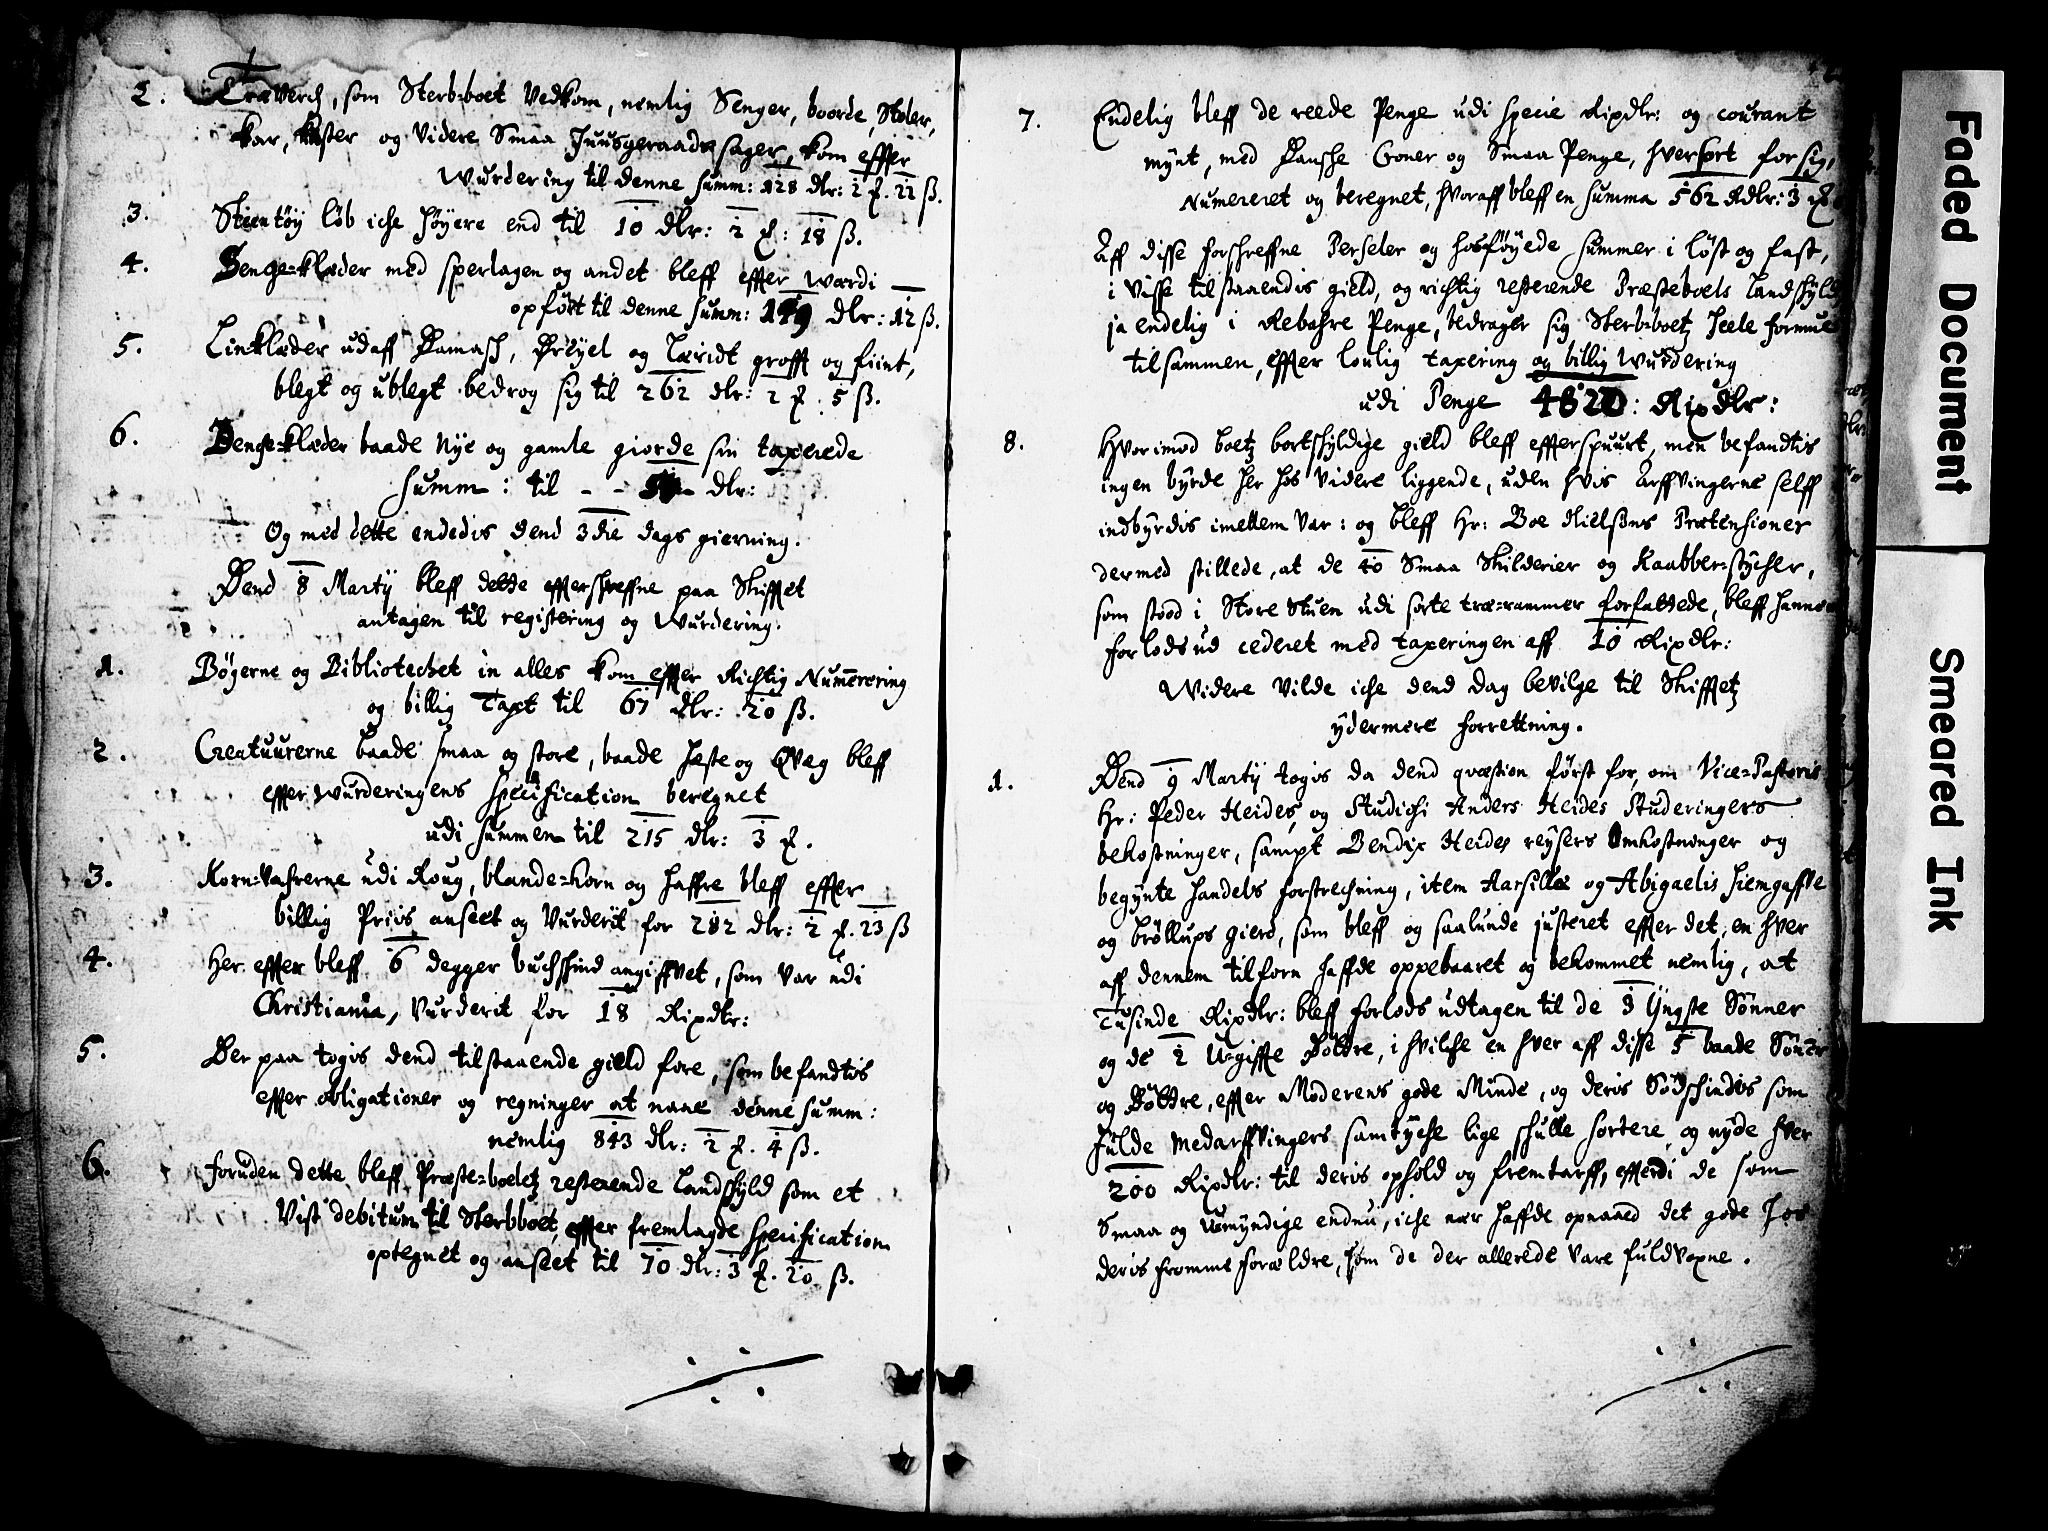 2. Træverch, som Sterb-boet Vedkom, nemlig Senger, boorde, Stoler,
Kar, Kister og Videre Smaa Huusgeraads sager, kom effter
Wurdering til denne summ: 128 dlr: 2 ℔. 22 ß.
3. Steentøy løb iche høyere end til 10 dlr: 2 ℔: 18 ß.
4. Senge-klæder med sperlagen og andet bleff effter wærdi
opført til denne summ: 149 dlr: 12 ß.
5. Linklæder udaff Damasch, Dreyel og Læridt grofft og fiint,
blegt og ublegt bedrog sig til 262 dlr: 2 ℔. 5 ß.
6. Senge-klæder baade Nye og gamle giorde sin taxerede
summ: til - - dlr:
Og med dette endedis dend 3die dags gierning.
Dend 8 Martij bleff dette effterschreffne paa Skifftet
antagen til registering og Wurdering.
1. Bøgerne og Bibliotechet in alles kom effter Richtig Numerering
og billig Taxt til 67 dlr: 20 ß.
2. Creatuurerne baade smaa og store, baade heste og Qvæg bleff
effter wurderingens specification beregnet
udi summen til 215 dlr: 3 ℔.
3. Korn-Vahrerne udi Roug, blande-korn og haffre bleff effter
billig Priis anseet og Vurderit for 282 dlr: 2 ℔. 23 ß
4. Her effter bleff 6 degger buchskind angiffvet, som var udi
Christiania, Vurderit for 18 Rixdlr:
5. Der paa togis dend tilstaaende gield fore, som befandtis
effter obligationer og regninger at naae denne summ:
nemlig 843 dlr: 2 ℔. 4 ß.
6. foruden dette bleff Præste-boeletz resterende Landskyld som et
Vist debitum til Sterbboet, effter fremlagde specification
optegnet og anseet til 70 dlr: 3 ℔. 20 ß.
7. Endelig bleff de reede Penge udi specie Rixdlr: og courant
mynt, med Danshe Croner og Smaa Penge, hversort for sig,
Numereret og beregnet, hvoraff bleff en summa 562 Rdlr: 3 ℔
Aff disse forschreffne Perseler og hosføyede summer i løst og fast,
i visse tilstaaendis gield, og richtig resterende Præsteboels Landskyld
ja endelig i Rebahre Penge, bedrager sig Sterb-boetz heele formue
tilsammen, effter loulig taxering og billig wurdering
udi Penge 4820: Rixdlr:
8. Hvorimod boetz bortskyldige gield bleff effterspuurt, men befandtis
ingen byrde her hos videre liggende, uden hvis Arffvingerne selff
indbyrdis imellem var: og bleff Hr: Boe Nielßens Prætensioner
dermed stillede, at de 40 Smaa Skilderier og Kaabber-stycher,
som stood i Store Stuen udi sorte træ-rammer forfattede, bleff hannem
forlods ud cederet med taxeringen aff 10 Rixdlr:
Widere Vilde iche dend dag bevilge til Skifftetz
ydermere forrettning.
1. Dend 9 Martij togis da dend qvæstion først for, om Vice-Pastoris
Hr: Peder Heides, og Studiosi Anders Heides Studeringers
bekostninger, sampt Bendix Heides reysers Omkostninger og
begynte handels forstrechning, item Aarsille og Abigaelis hiemgaffve
og brøllups gierd, som bleff og saalunde justeret effter det, en hver
aff dennem tilforn haffde oppebaaret og bekommet nemlig, at
Tusinde Rixdlr: bleff forlods udtagen til de 3 Yngste Sønner
og de 2 Ugiffte Døttre, i hvilche en hver aff disse 5 baade Sønner
og Døttre, effter Moderens gode Minde, og deris Sødschindis som
fulde Medarffvingers samtyche lige skulle sortere, og nyde hver
200 Rixdlr: til deris ophold og fremtarff, efferdi de som
Smaa og Umyndige endnu, iche nær haffde opnaaed det gode hos
deris fromme forældre, som de der allerede vare fuldvoxne.
Faded Document
Smeared Ink